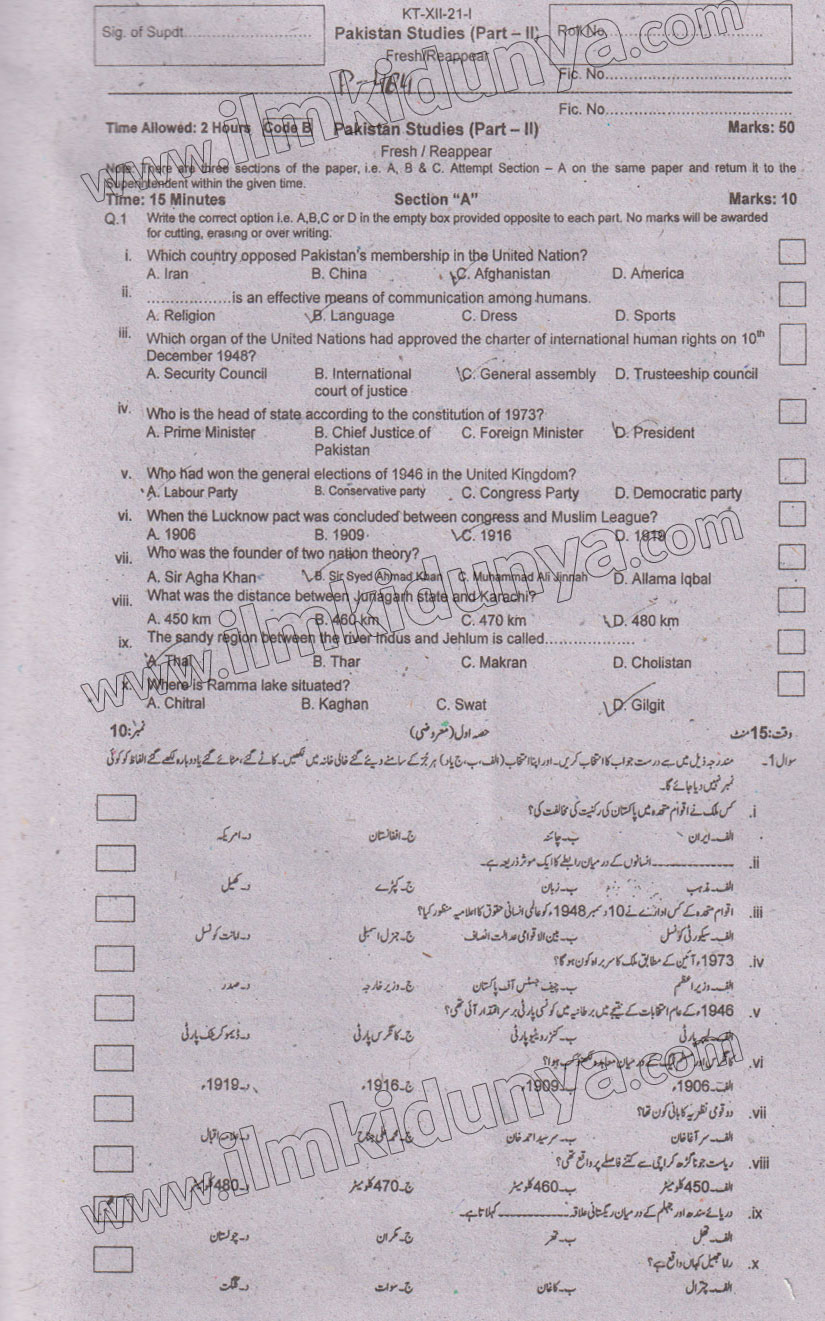 KT-XII-21-I
Sig. of Supdt.................................
Pakistan Studies (Part – II)
Roll No.
Fresh/Reappear
Fic. No.............................................
Fic. No.............................................
Time Allowed: 2 Hours Code B Pakistan Studies (Part – II) Marks: 50
Fresh / Reappear
Note: There are three sections of the paper, i.e. A, B & C. Attempt Section – A on the same paper and return it to the
Superintendent within the given time.
Time: 15 Minutes Section "A" Marks: 10
Q.1 Write the correct option i.e. A,B,C or D in the empty box provided opposite to each part. No marks will be awarded
for cutting, erasing or over writing.
i. Which country opposed Pakistan's membership in the United Nation?
A. Iran B. China C. Afghanistan D. America
ii. ...................is an effective means of communication among humans.
A. Religion B. Language C. Dress D. Sports
iii. Which organ of the United Nations had approved the charter of international human rights on 10th
December 1948?
A. Security Council B. International C. General assembly D. Trusteeship council
court of justice
iv. Who is the head of state according to the constitution of 1973?
A. Prime Minister B. Chief Justice of C. Foreign Minister D. President
Pakistan
v. Who had won the general elections of 1946 in the United Kingdom?
A. Labour Party B. Conservative party C. Congress Party D. Democratic party
vi. When the Lucknow pact was concluded between congress and Muslim League?
A. 1906 B. 1909 C. 1916 D. 1919
vii. Who was the founder of two nation theory?
A. Sir Agha Khan B. Sir Syed Ahmad Khan C. Muhammad Ali Jinnah D. Allama Iqbal
viii. What was the distance between Junagarh state and Karachi?
A. 450 km B. 460 km C. 470 km D. 480 km
ix. The sandy region between the river Indus and Jehlum is called....................
A. Thal B. Thar C. Makran D. Cholistan
x. Where is Ramma lake situated?
A. Chitral B. Kaghan C. Swat D. Gilgit
وقت:15منٹ حصہ اول(معروضی) نمبر:10
سوال1۔ مندرجہ ذیل میں سے درست جواب کا انتخاب کریں۔ اور اپنا انتخاب (الف،ب،ج یاد) ہر جُز کے سامنے دیئے گئے خالی خانہ میں لکھیں۔ کاٹے گئے، مٹائے گئے یا دوبارہ لکھے گئے الفاظ کو کوئی
نمبر نہیں دیا جائے گا۔
i. کس ملک نے اقوام متحدہ میں پاکستان کی رکنیت کی مخالفت کی؟
الف۔ ایران ب۔ چائنہ ج۔ افغانستان د۔ امریکہ
ii. ۔۔۔۔۔۔۔۔۔۔ انسانوں کے درمیان رابطے کا ایک موثر ذریعہ ہے۔
الف۔ مذہب ب۔ زبان ج۔ کپڑے د۔ کھیل
iii. اقوام متحدہ کے کس ادارے نے 10 دسمبر 1948ء کو عالمی انسانی حقوق کا اعلامیہ منظور کیا؟
الف۔ سیکورٹی کونسل ب۔ بین الاقوامی عدالت انصاف ج۔ جنرل اسمبلی د۔ امانت کونسل
iv. 1973ء آئین کے مطابق ملک کا سربراہ کون ہوگا؟
الف۔ وزیراعظم ب۔ چیف جسٹس آف پاکستان ج۔ وزیر خارجہ د۔ صدر
v. 1946ء کے عام انتخابات کے نتیجے میں برطانیہ میں کونسی پارٹی برسراقتدار آئی تھی؟
الف۔ لیبر پارٹی ب۔ کنزرویٹیو پارٹی ج۔ کانگرس پارٹی د۔ ڈیموکریٹک پارٹی
vi. کانگرس اور مسلم لیگ کے درمیان معاہدہ لکھنؤ کب ہوا؟
الف۔ 1906ء ب۔ 1909ء ج۔ 1916ء د۔ 1919ء
vii. دو قومی نظریہ کا بانی کون تھا؟
الف۔ سر آغا خان ب۔ سرسید احمد خان ج۔ محمد علی جناح د۔ علامہ اقبال
viii. ریاست جوناگڑھ کراچی سے کتنے فاصلے پر واقع تھی؟
الف۔ 450 کلومیٹر ب۔ 460 کلومیٹر ج۔ 470 کلومیٹر د۔ 480 کلومیٹر
ix. دریائے سندھ اور جہلم کے درمیان ریگستانی علاقہ ۔۔۔۔۔۔۔۔۔۔ کہلاتا ہے۔
الف۔ تھل ب۔ تھر ج۔ مکران د۔ چولستان
x. راما جھیل کہاں واقع ہے؟
الف۔ چترال ب۔ کاغان ج۔ سوات د۔ گلگت
www.ilmkidunya.com
www.ilmkidunya.com
www.ilmkidunya.com